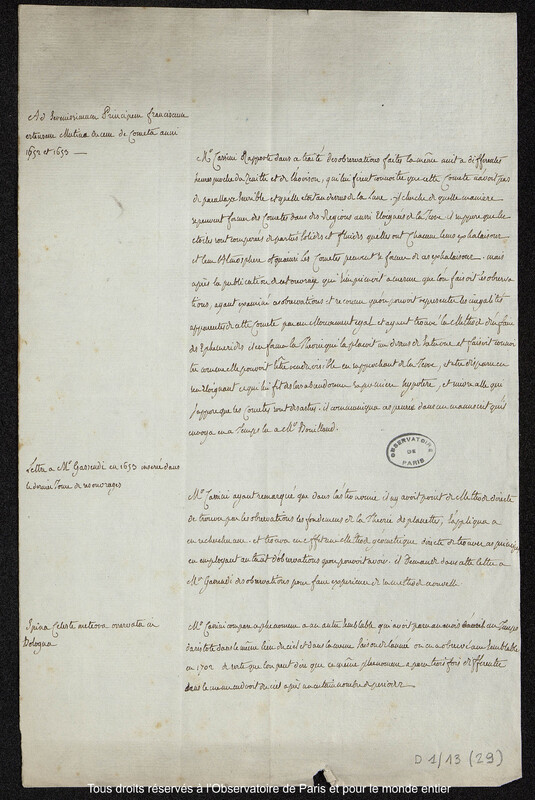 Ad Serenissimum Principem franciscum
estensem Mutinæ ducem de Cometa anni
1652 et 1653 —
Mr. Cassini Rapporte dans ce traité des observations faites la même nuit a differentes
heures proche du Zenith et de l'horison, qui lui firent connoitre que cette Comete n'avoit pas
de parallaxe sensible et qu'elle etoit au dessus de la Lune. il cherche de quelle maniere
se peuvent former des Cometes dans des Regions aussi eloignées de la Terre. il suppose que les
etoiles sont composées de parties solides et fluides qu'elles ont chacune leurs exhalaisons
et leur Atmosphere et qu'ainsi les Cometes peuvent se former de ces exhalaisons. mais
après la publication de cet ouvrage qui s'imprimoit a mesure que l'on faisoit les observa
tions, ayant examiné ces observations et reconnu qu'on pouvoit representer les inegalités
apparentes de cette Comete par un Mouvement egal et ayant trouvé la Methode d'en faire
des Ephemerides, il en forma la Theorie qui la plaçoit au dessus de Saturne et faisoit connoi
tre comme elle pouvoit s'être rendue visible en s'approchant de la Terre, et être disparue en
s'en eloignant ce qui lui fit des lors abandonner sa premiere hypotese, et suivre celle qui
suppose que les Cometes sont des astres. il communiqua ses pensées dans un manuscrit qu'il
envoya en ce Temps la a Mr. Bouillaud.
OBSERVATOIRE
DE
PARIS
Lettre a Mr. Gassendi en 1653 inserée dans
le dernier Tome de ses ouvrages
Mr. Cassini ayant remarqué que dans l'astronomie il n'y avoit point de Methode directe
de trouver par les observations les fondemens de la Theorie des planettes, s'appliqua a
en rechercher une. et trouva en effet une methode géometrique directe de trouver ces principes
en employant autant d'observations qu'on pouvoit avoir. il Demande dans cette lettre a
Mr. Gassendi des observations pour faire experience de la methode nouvelle.
Spina Celeste meteora osservata in
Bologna
Mr. Cassini compare ce phenomene a un autre semblable qui avoit paru au mois du Temps
d'aristote dans le même lieu du ciel et dans la même Saison de l'année on en a observé un semblable
en 1702 de sorte que l'on peut dire que ce même phenomene a paru trois fois et differentes
dans le même endroit du ciel après un certain nombre de periodes
D 1/13 (29)
Tous droits réservés à l'Observatoire de Paris et pour le monde entier